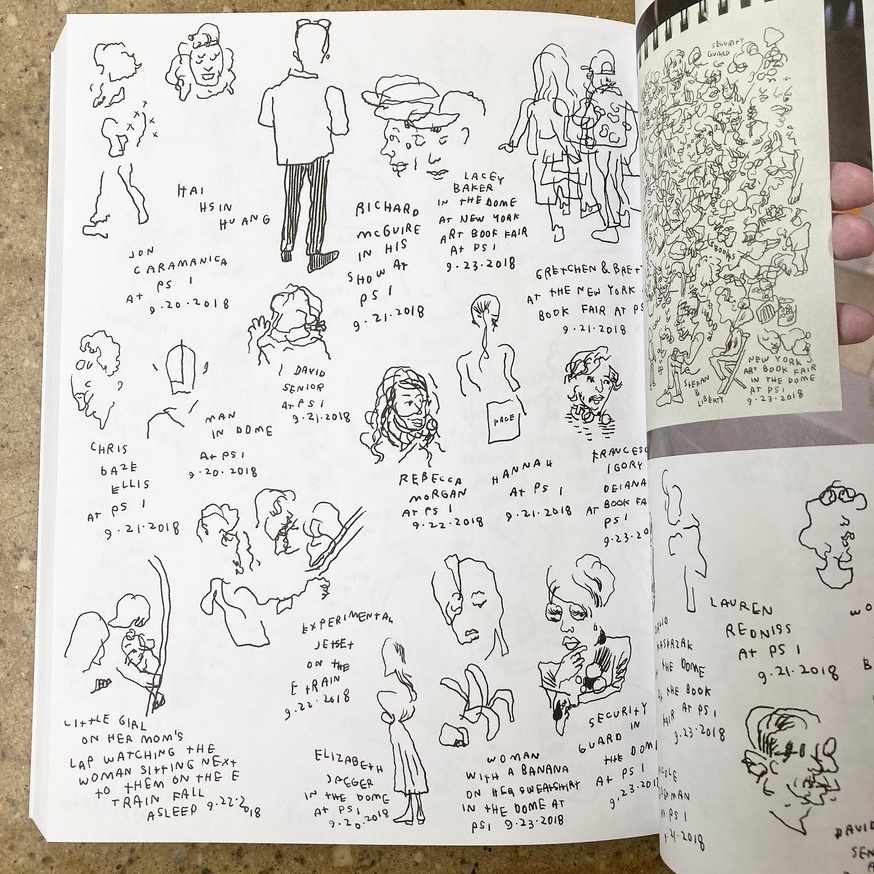 HAI
HSIN
HUANG
JON
CARAMANICA
AT PS 1
9.20.2018
RICHARD
McGUIRE
IN HIS
SHOW AT
PS 1
9.21.2018
LACEY
BAKER
IN THE DOME
AT NEW YORK
ART BOOK FAIR
AT PS 1
9.23.2018
GRETCHEN & BRET
AT THE NEW YORK
BOOK FAIR AT PS
9.21.2018
CHRIS
DAZE
ELLIS
AT PS 1
9.21.2018
MAN
IN DOME
AT PS 1
9.20.2018
DAVID
SENIOR
AT PS 1
9.21.2018
REBECCA
MORGAN
AT PS 1
9.22.2018
PAGE
HANNAH
AT PS 1
9.21.2018
FRANCESC
IGORY
DEIANA
AT BOOK FA
PS 1
9.23.20
LITTLE GIRL
ON HER MOM'S
LAP WATCHING THE
WOMAN SITTING NEXT
TO THEM ON THE E
TRAIN FALL
ASLEEP 9.22.2018
EXPERIMENTAL
JETSET
ON THE
E TRAIN
9.22.2018
ELIZABETH
JAEGER
IN THE DOME
AT PS 1
9.20.2018
WOMAN
WITH A BANANA
ON HER SWEATSHIRT
IN THE DOME AT
PS 1 9.23.2018
SECURITY
GUARD IN
THE DOM
AT PS 1
9.23.201
SECURITY
GUARD
BOOKS
STEFAN
&
LIBERTY
NEW YORK
ART BOOK FAIR
IN THE DOME
AT PS 1
9.23.2018
THE DOME
THE BOOK
AIR AT PS 1
9.23.2018
LAUREN
REDNISS
AT PS 1
9.21.2018
WO
B
PS 1
2018
DAVID
SEN
A